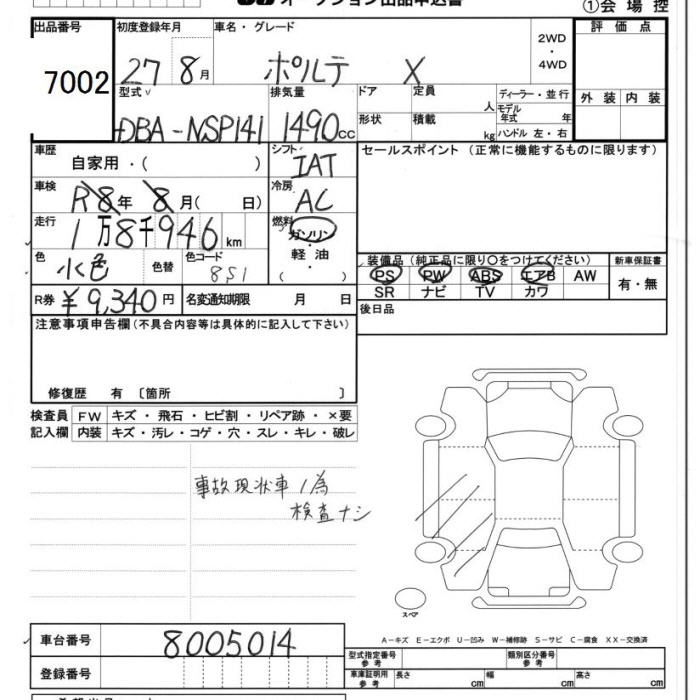 オークション出品申込書
①会場控
出品番号 7002
初度登録年月 27 8月
車名・グレード ポルテ X
2WD・4WD
評価点
外装 内装
型式 DBA-NSP141
排気量 1490cc
ドア 定員 人
形状 積載 kg
ディーラー・並行
モデル年式 年
ハンドル 左・右
車歴 自家用・( )
シフト IAT
セールスポイント (正常に機能するものに限ります)
車検 R8年 8月( 日)
冷房 AC
走行 1万8千946km
燃料 ガソリン・軽油・( )
色 水色 色替 色コード 8S1
装備品 (純正品に限り○をつけてください)
新車保証書
PS PW ABS エアB AW
SR ナビ TV カワ
有・無
R券 ¥9,340円 名変通知期限 月 日
後日品
注意事項申告欄(不具合内容等は具体的に記入して下さい)
修復歴 有 〔箇所 〕
検査員 FW キズ・飛石・ヒビ割・リペア跡・×要
記入欄 内装 キズ・汚レ・コゲ・穴・スレ・キレ・破レ
事故現状車ノ為
検査ナシ
スペア
A-キズ E-エクボ U-凹み W-補修跡 S-サビ C-腐食 XX-交換済
車台番号 8005014
型式指定番号 参考
類別区分番号 参考
登録番号
車庫証明用 参考 長さ cm 幅 cm 高さ cm